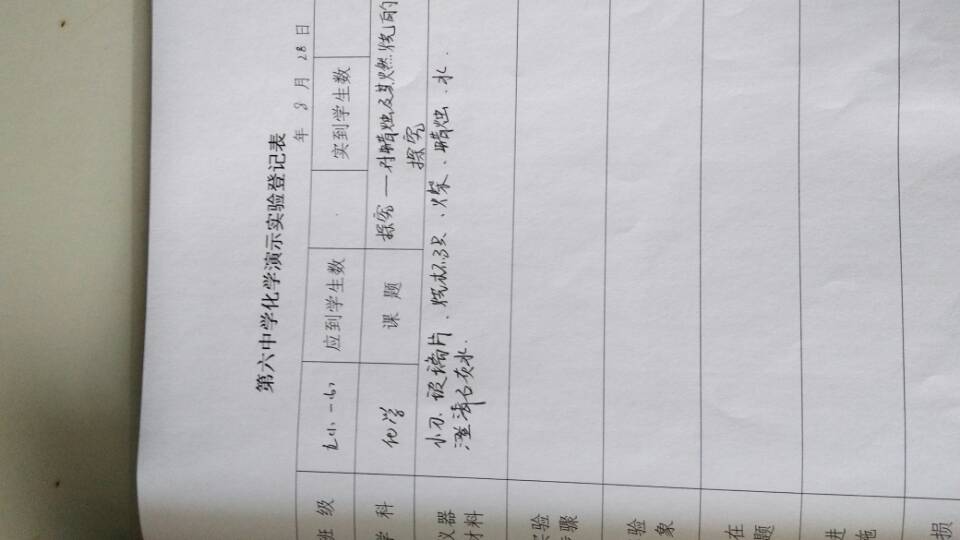 第六中学化学演示实验登记表
年 8 月 28 日
班 级
应到学生数
实到学生数
学 科 化学 课 题 探究一对蜡烛及其燃烧的
探究
仪器
材料
小刀.玻璃片、烧杯3只、火柴、蜡烛、水.
澄清石灰水.
实验
步骤
验
象
在
题
进
施
损